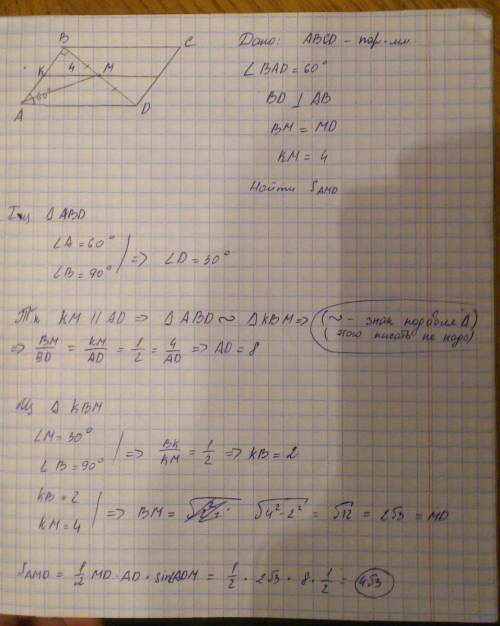 B
C
K
4
M
A
60°
D
Дано: ABCD – пар-мм.
∠BAD = 60°
BD ⊥ AB
BM = MD
KM = 4
Найти S_AMD
Из Δ ABD
∠A = 60°
∠B = 90° | => ∠D = 30°
Т.к KM || AD => Δ ABD ~ Δ KBM => (~ – знак подобия Δ)
(это писать не надо)
=> BM/BD = KM/AD = 1/2 = 4/AD => AD = 8
Из Δ KBM
∠M = 30°
∠B = 90° | => BK/KM = 1/2 => KB = 2
KB = 2
KM = 4 | => BM = √(4² - 2²) = √12 = 2√3 = MD
S_AMD = 1/2 MD · AD · sin∠ADM = 1/2 · 2√3 · 8 · 1/2 = 4√3